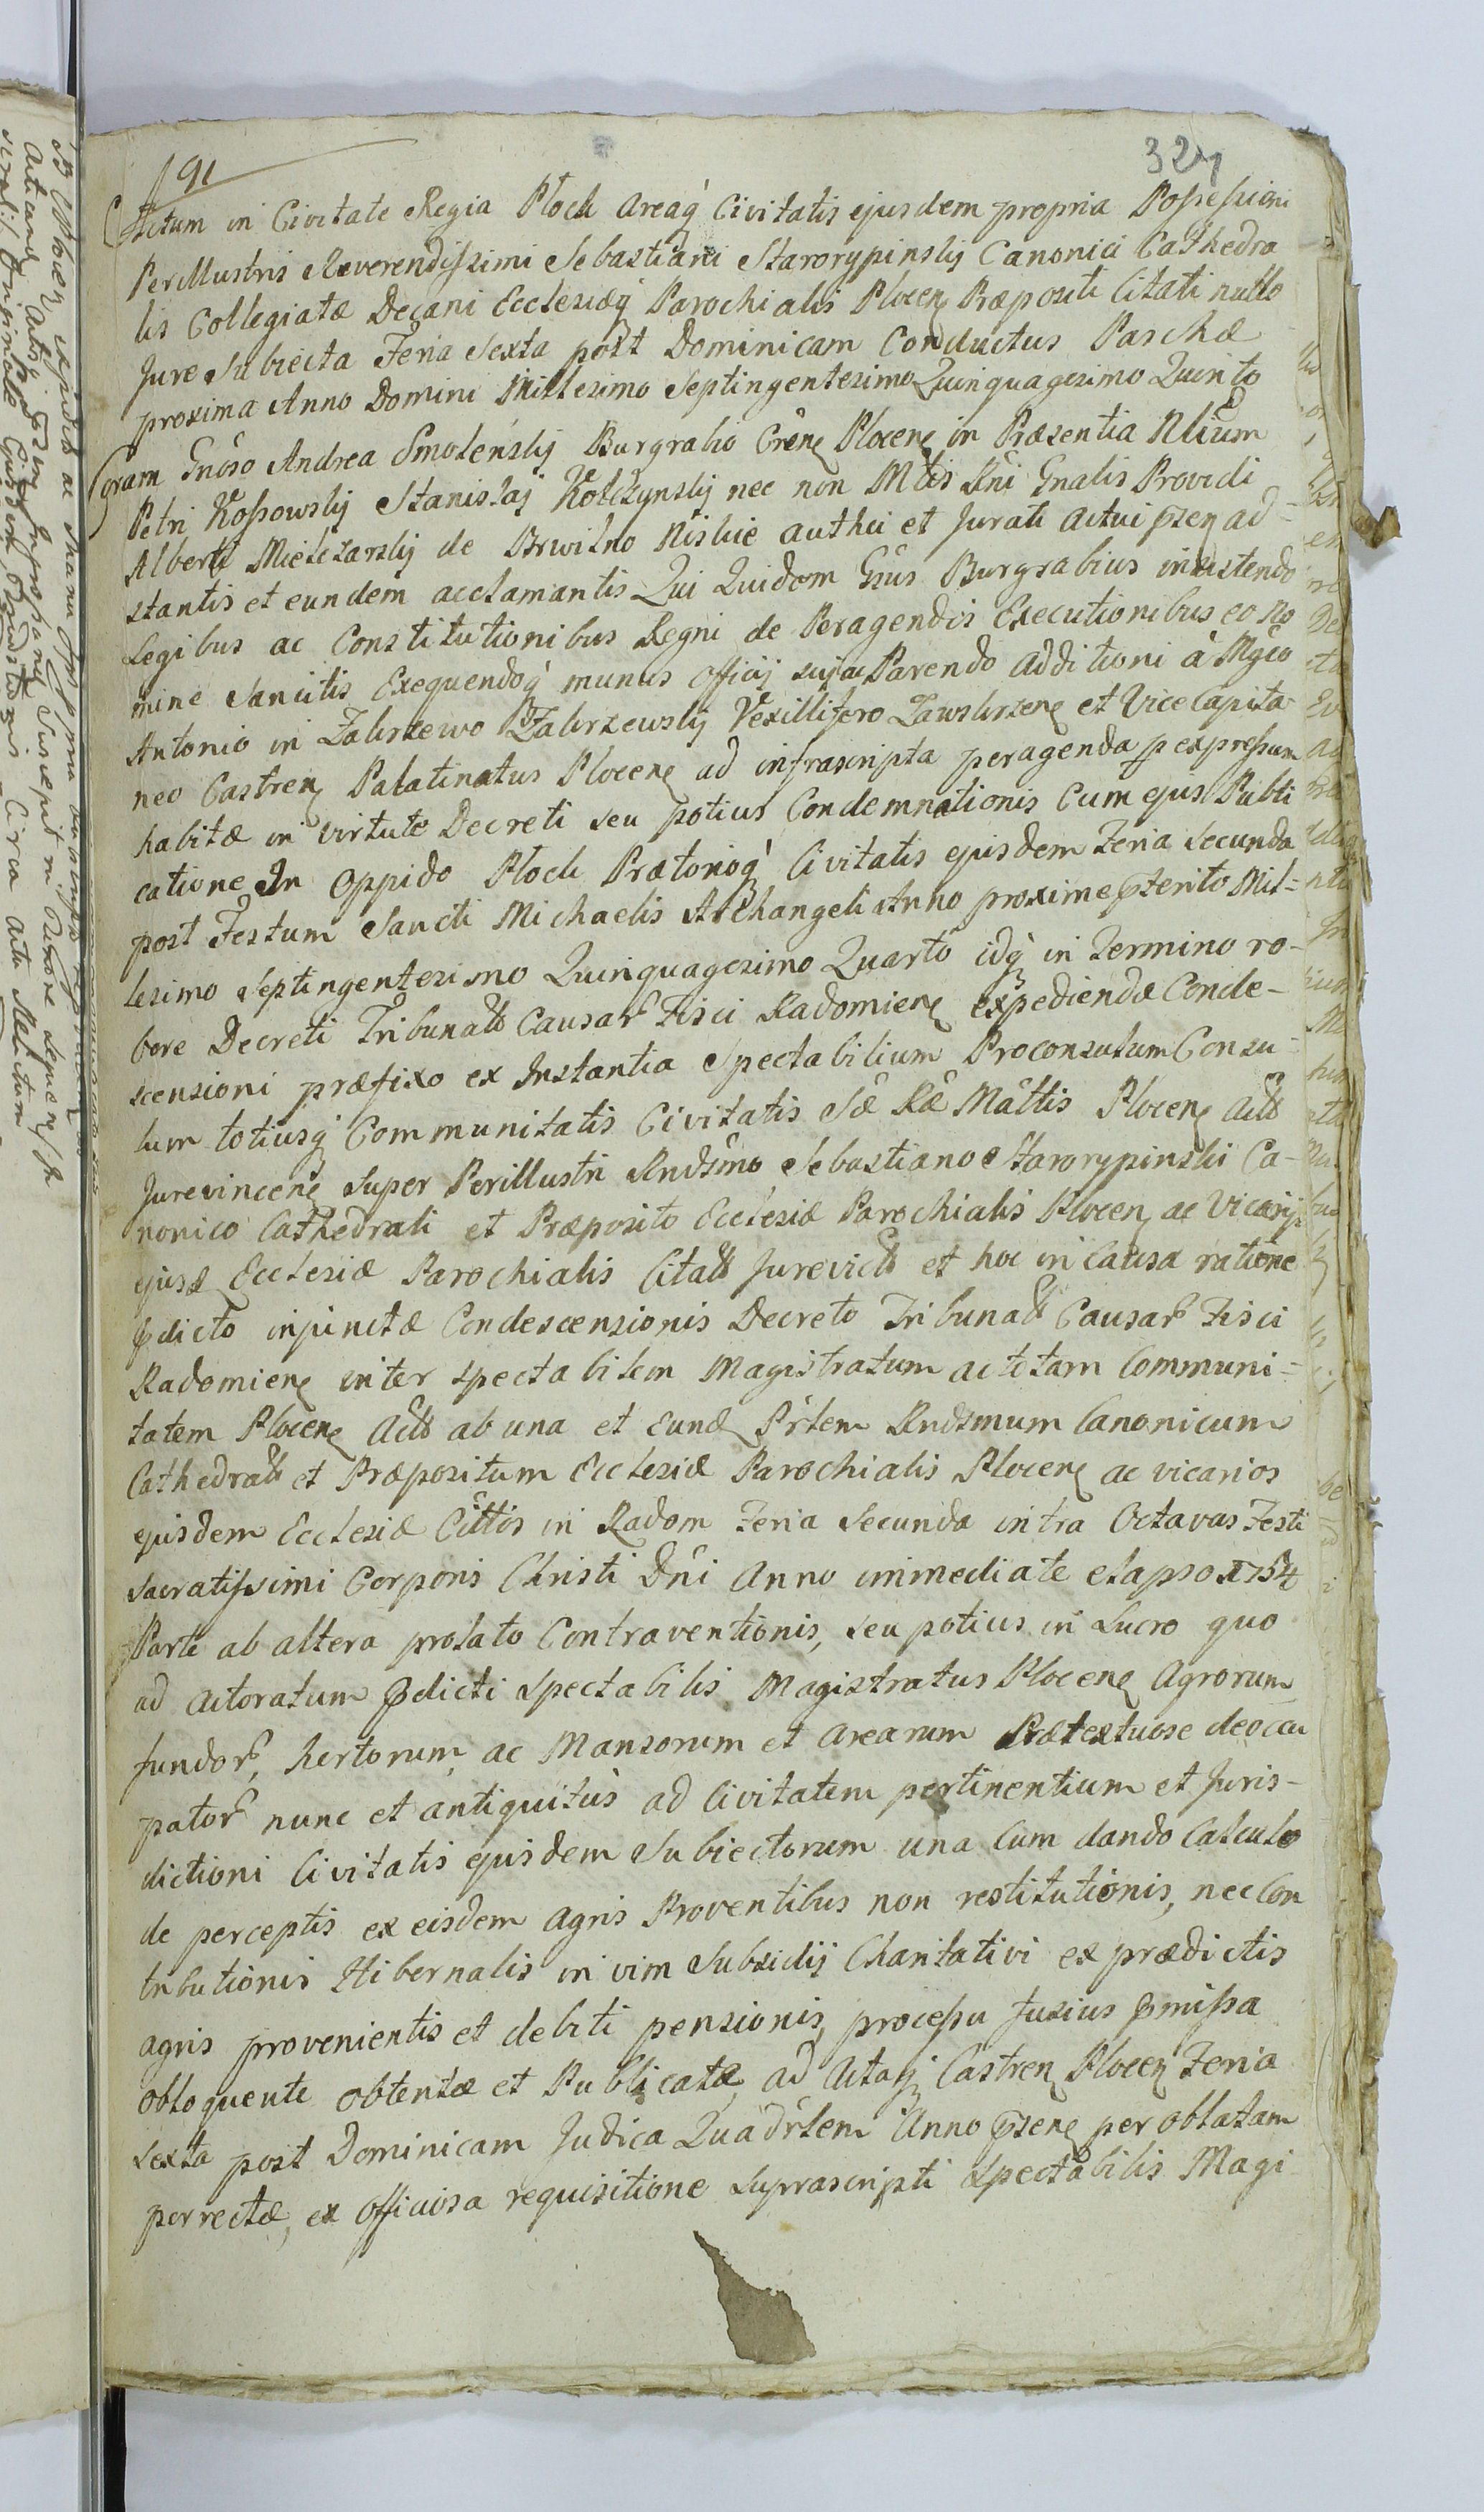 91
327
Actum in Civitate Regia Płock Areaq' Civitatis ejusdem propria Possessioni
Perillustris Reverendissimi Sebastiani Starorypinskij Canonici Cathedra
lis Collegiatæ Decani Ecclesiæq' Parochialis Plocen Præpositi Citati nullo
Jure Subiecta Feria Sexta post Dominicam Conductus Paschæ
proxima Anno Domini Millesimo Septingentesimo Quinquagesimo Quinto
Coram Gnoso Andrea Smoleńskij Burgrabio Crêne Plocene in Præsentia Nlium
Petri Kossowskij Stanislaj Kołczynskij nec non Mtis Rni Gnalis Providi
Alberti Mielczarskij de Brwilno Niskie authci et Jurati actui pzen ad-
stantis et eundem acclamantis Qui Quidem Gsus Burgrabius insistendo
Legibus ac Constitutionibus Regni de Peragendis Executionibus eo no
mine Sancitis Exequendoq' munus officij sui ac Parendo additioni à Mgco
Antonio in Zakrzewo Zakrzewskij Vexillifero Zawskrzene et Vice Capita
neo Castren Palatinatus Plocene ad infrascripta peragenda p expressum
habitæ in virtute Decreti seu potius Condemnationis Cum ejus Publi
catione In Oppido Płock Prætorioq' Civitatis ejusdem Feria Secunda
post Festum Sancti Michaelis Archangeli Anno proxime pterito Mil=
lesimo Septingentesimo Quinquagesimo Quarto idq' in Termino ro-
bore Decreti Tribunalis Causar Fisci Radomiene expediendæ Conde-
scensioni præfixo ex Instantia Spectabilium Proconsulum Consu-
lum totiusq' Communitatis Civitatis Sæ Ræ Mattis Plocene Act
Jurevincene Super Perillustri Rndsmo Sebastiano Starorypinski Ca-
nonico Cathedrali et Præposito Ecclesiæ Parochialis Plocen ac Vicarijs
ejusd Ecclesiæ Parochialis Citatt Jurevict et hoc in Causa ratione
pdicto injunctæ Condescensionis Decreto Tribunatt Causar Fisci
Radomiene inter Spectabilem Magistratum ac totam Communi=
tatem Plocene Actt ab una et Eund Prtem Rndsmum Canonicum
Cathedralt et Præpositum Ecclesiæ Parochialis Plocene ac vicarios
ejusdem Ecclesiæ Cittos in Radom Feria Secunda intra Octavas Festi
Sacratissimi Corporis Christi Dni Anno immediate elapso 1754
Parte ab altera prolato Contraventionis, seu potius in Lucro quo
ad actoratum pdicti Spectabilis Magistratus Plocene Agrorum
fundor, hortorum, ac Mansorum et arearum Prætextuose deoccu
pator nunc et antiquitùs ad Civitatem pertinentium et Juris-
dictioni Civitatis ejusdem Subiectorum una Cum dando Calculo
de perceptis ex eisdem agris Proventibus non restitutionis, nec Con
tributionis Hibernalis in vim Subsidij Charitativi ex prædictis
agris provenientis et debiti pensionis, processu fusius pmissa
obloquente obtentæ et Publicatæ, ad Actaq Castren Plocen Feria
Sexta post Dominicam Judica Quadrlem Anno pzene per oblatam
porrectæ, ex officiosa requisitione Suprascripti Spectabilis Magi